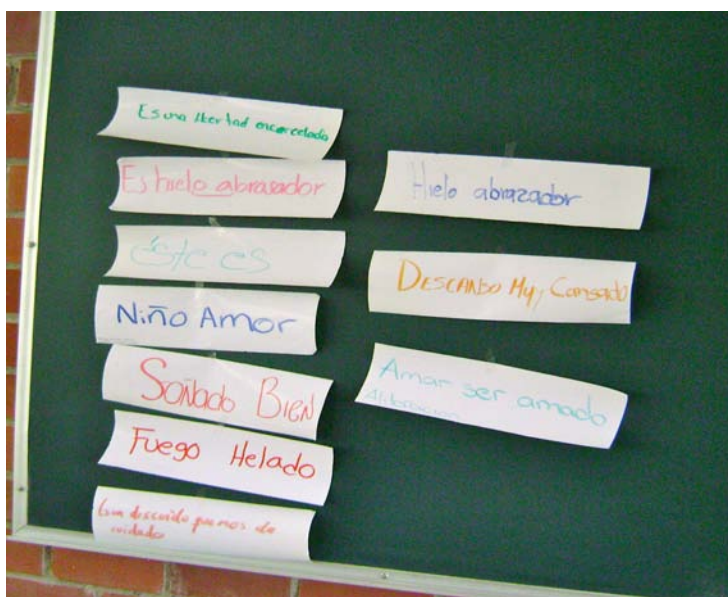 Es una libertad encarcelada
Es hielo abrasador
éste es
Niño Amor
Soñado BIEN
Fuego Helado
Un descuido que nos da
cuidado
Hielo abrazador
DESCANSO Muy Cansado
Amar ser amado